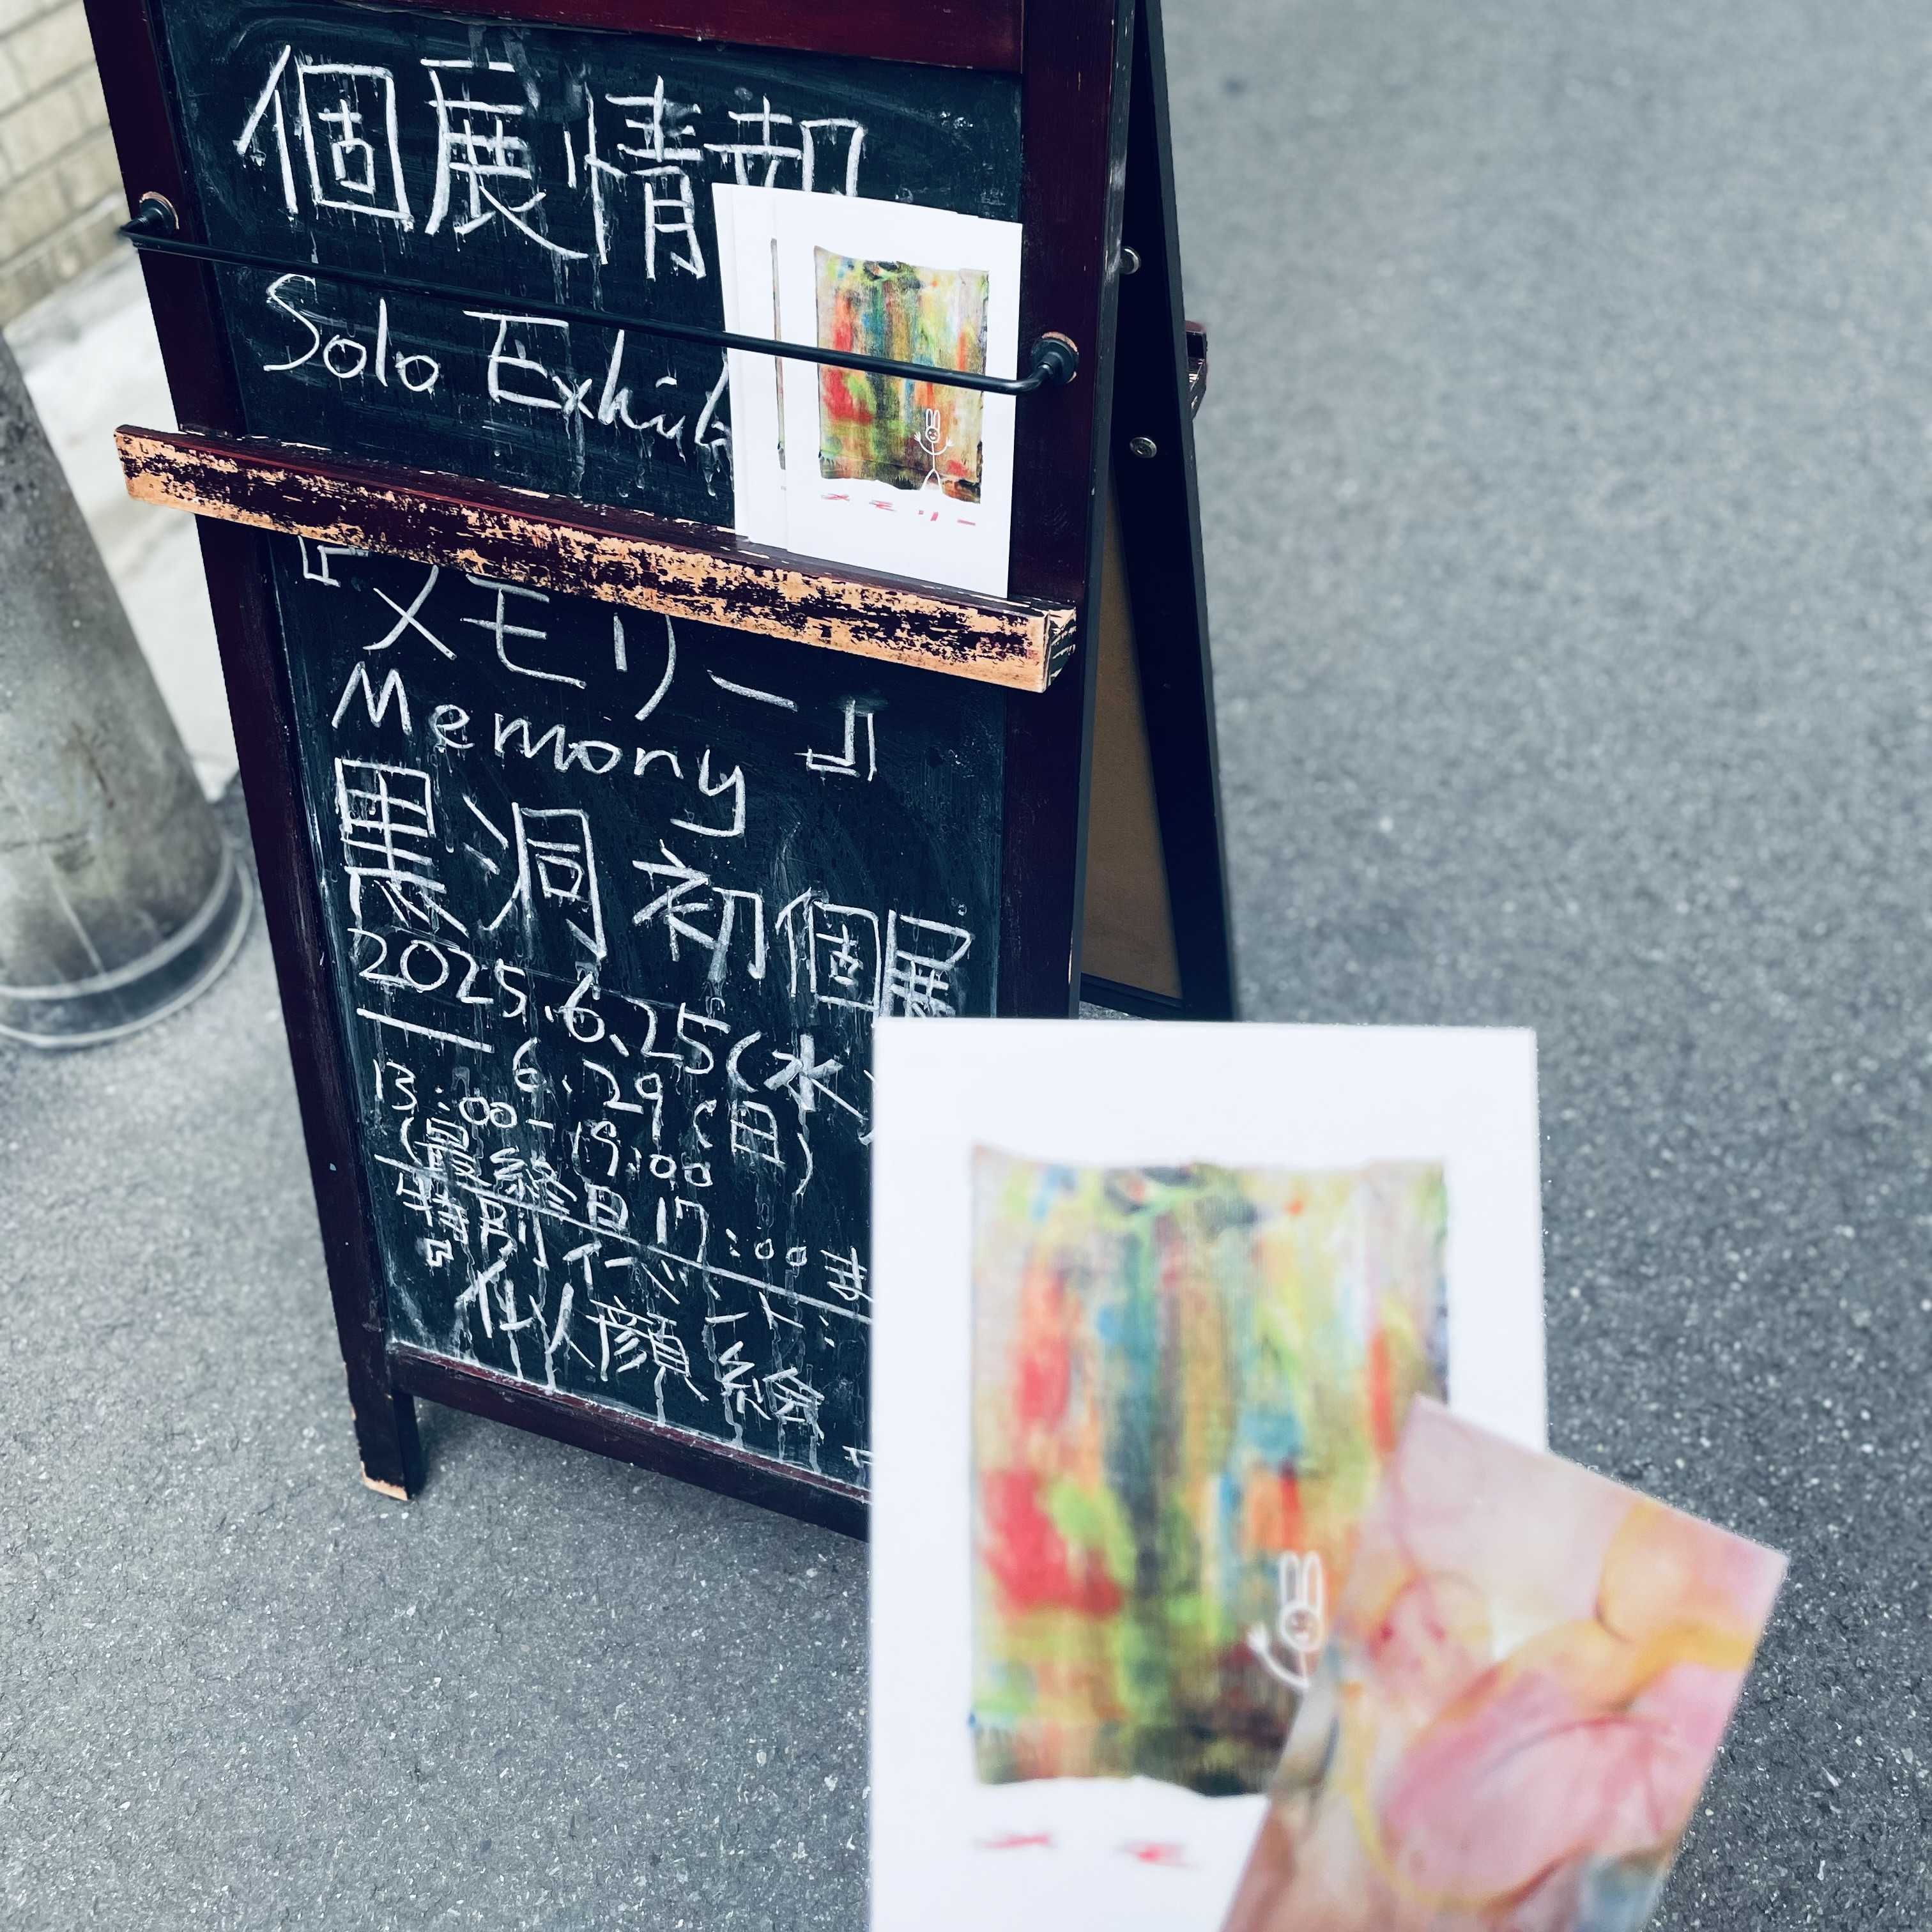 個展情報
Solo Exhib
メモリー
『メモリー』
Memory
黒洞初個展
2025.6.25(水)
— 6.29(日)
13:00-19:00
(最終日17:00ま
特別イベント:
似顔絵
メモ